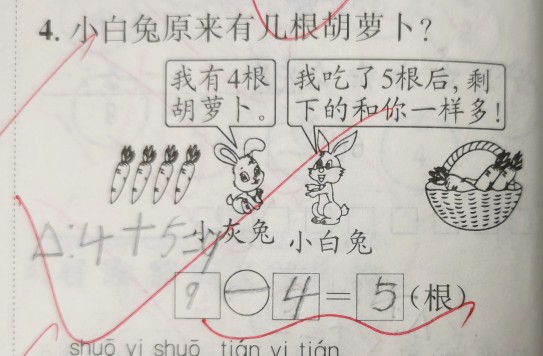 4. 小白兔原来有几根胡萝卜?
我有4根
胡萝卜。
我吃了5根后,剩
下的和你一样多!
小灰兔 小白兔
△:4+5=9
9-4=5(根)
shuō yi shuō tián yi tián